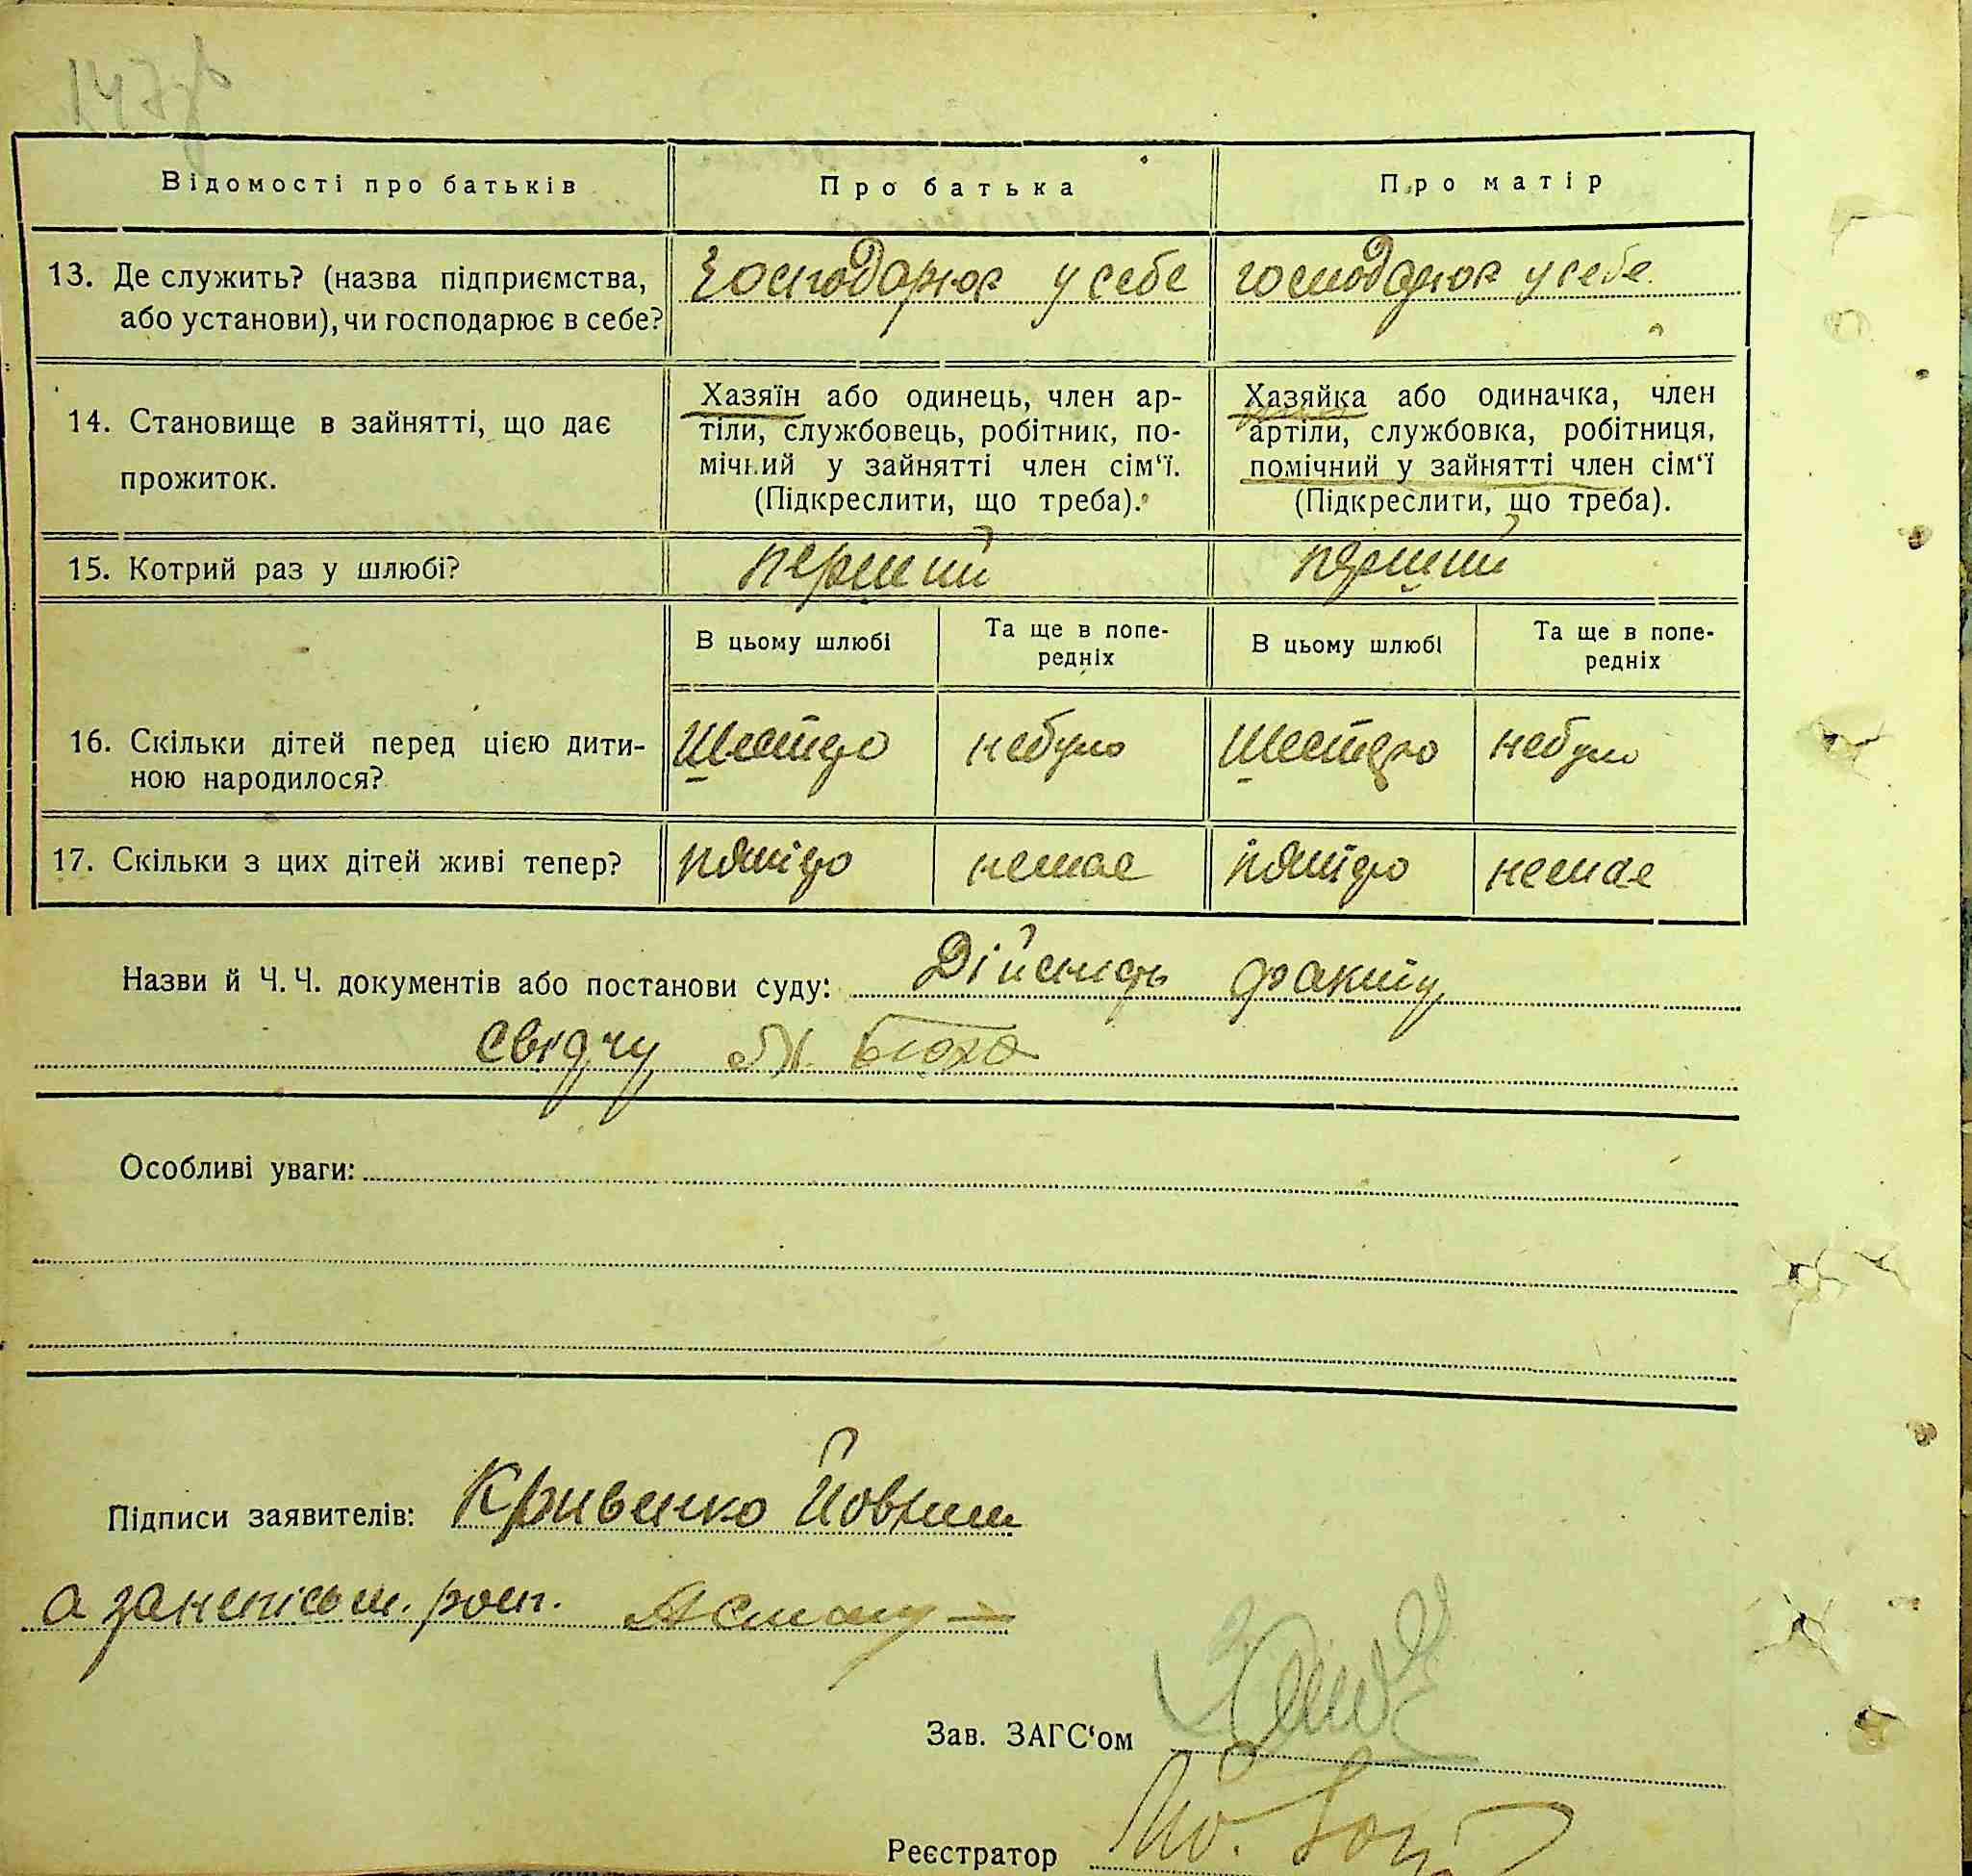 147зв
Відомості про батьків
Про батька
Про матір
13. Де служить? (назва підприємства,
або установи), чи господарює в себе?
господарює у себе
господарює у себе
14. Становище в зайнятті, що дає
прожиток.
Хазяїн або одинець, член ар-
тіли, службовець, робітник, по-
мічний у зайнятті член сім'ї.
(Підкреслити, що треба).
Хазяйка або одиначка, член
артіли, службовка, робітниця,
помічний у зайнятті член сім'ї
(Підкреслити, що треба).
15. Котрий раз у шлюбі?
перший
перший
В цьому шлюбі
Та ще в попе-
редніх
В цьому шлюбі
Та ще в попе-
редніх
16. Скільки дітей перед цією дити-
ною народилося?
Шестеро
небуло
Шестеро
небуло
17. Скільки з цих дітей живі тепер?
немає
немає
Назви й Ч. Ч. документів або постанови суду:
факту
свідчу
Особливі уваги:
Підписи заявителів: Кривенко Йовхим
а занеписьм. розп.
Зав. ЗАГС'ом
Реєстратор